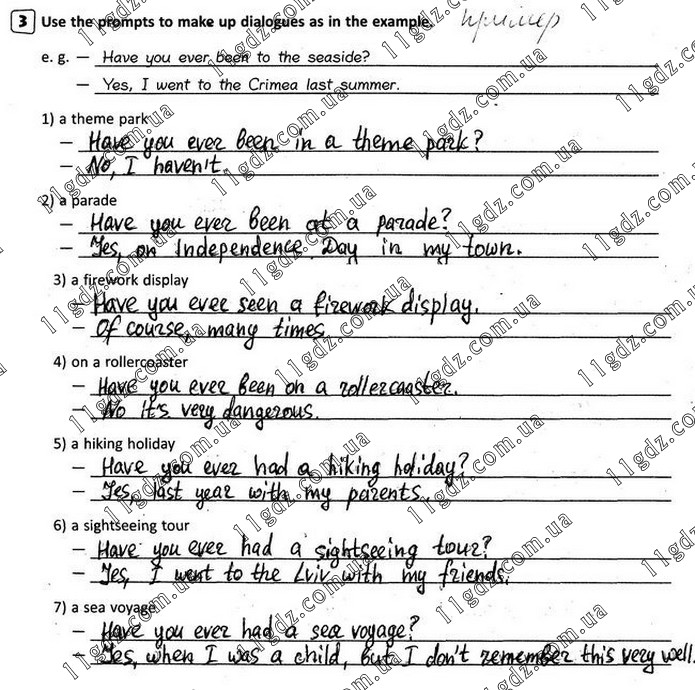 3 Use the prompts to make up dialogues as in the example. пример
e. g. – Have you ever been to the seaside?
– Yes, I went to the Crimea last summer.
1) a theme park
– Have you ever been in a theme park?
– No, I haven't.
2) a parade
– Have you ever been at a parade?
– Yes, on Independence Day in my town.
3) a firework display
– Have you ever seen a firework display.
– Of course, many times.
4) on a rollercoaster
– Have you ever been on a rollercoaster.
– No it's very dangerous.
5) a hiking holiday
– Have you ever had a hiking holiday?
– Yes, last year with my parents.
6) a sightseeing tour
– Have you ever had a sightseeing tour?
– Yes, I went to the Lviv with my friends.
7) a sea voyage
– Have you ever had a sea voyage?
– Yes, when I was a child, but I don't remember this very well.
11gdz.com.ua